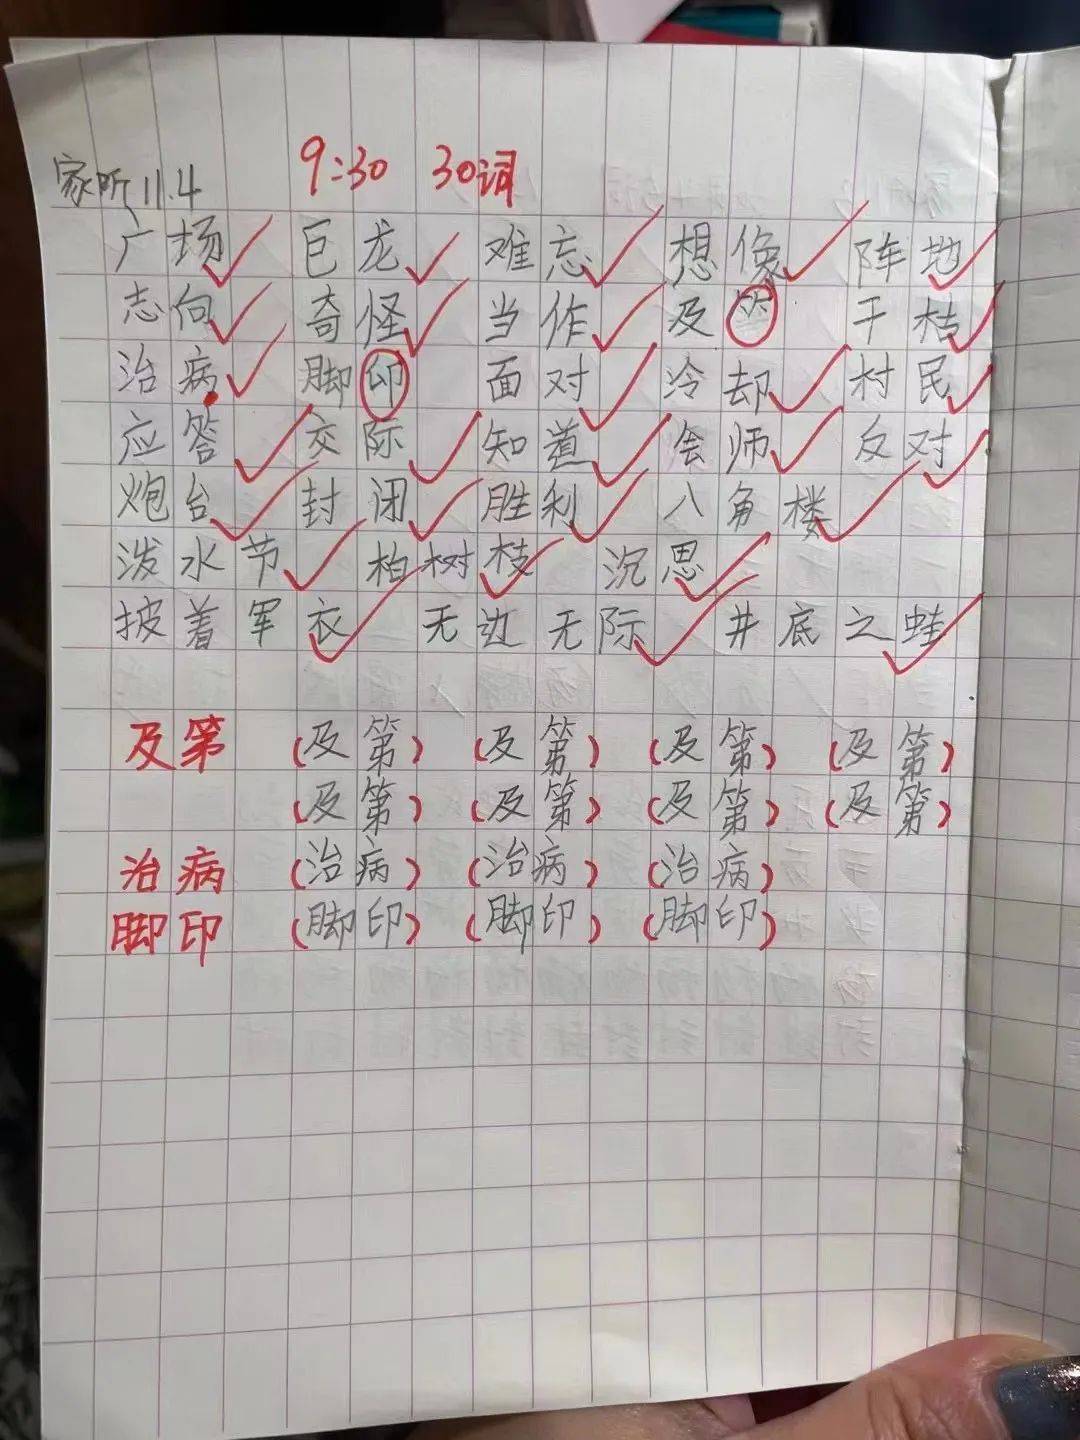 家听11.4 9:30 30词
广场 巨龙 难忘 想像 阵地
志向 奇怪 当作 及 干枯
治病 脚印 面对 冷却 村民
应答 交际 知道 会师 反对
炮台 封闭 胜利 八角楼
泼水节 柏树枝 沉思
披着军衣 无边无际 井底之蛙
及第 (及第) (及第) (及第) (及第)
(及第) (及第) (及第) (及第)
治病 (治病) (治病) (治病)
脚印 (脚印) (脚印) (脚印)